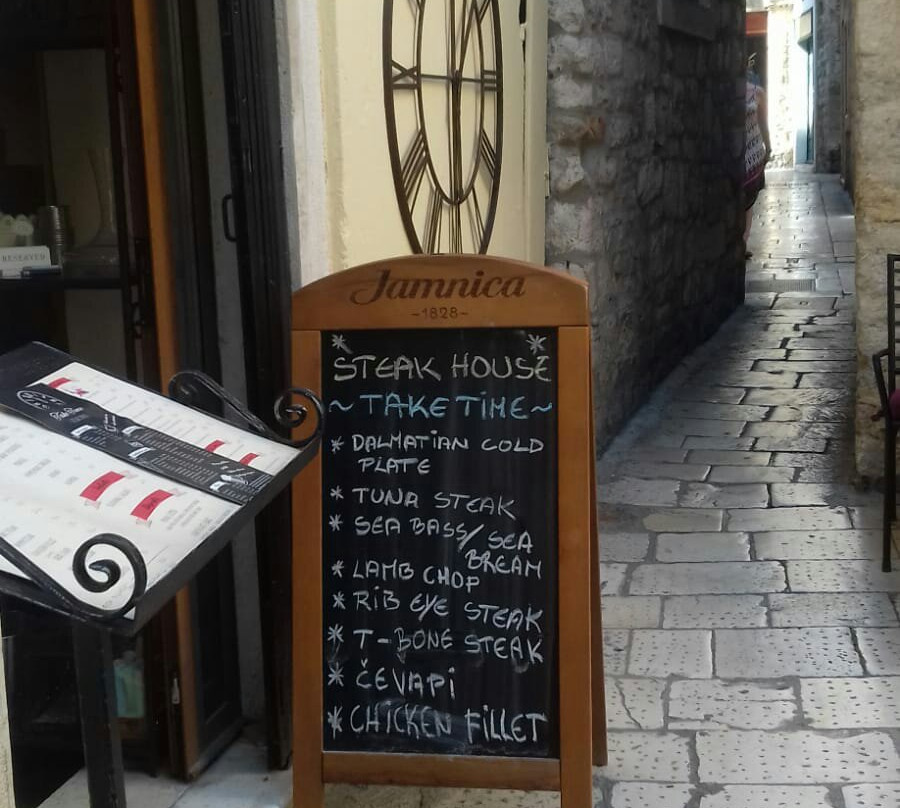 RESERVED
Jamnica
-1828-
* *
STEAK HOUSE
~ TAKE TIME ~
* DALMATIAN COLD
PLATE
* TUNA STEAK
* SEA BASS/ SEA
BREAM
* LAMB CHOP
* RIB EYE STEAK
* T-BONE STEAK
* ČEVAPI
* CHICKEN FILLET